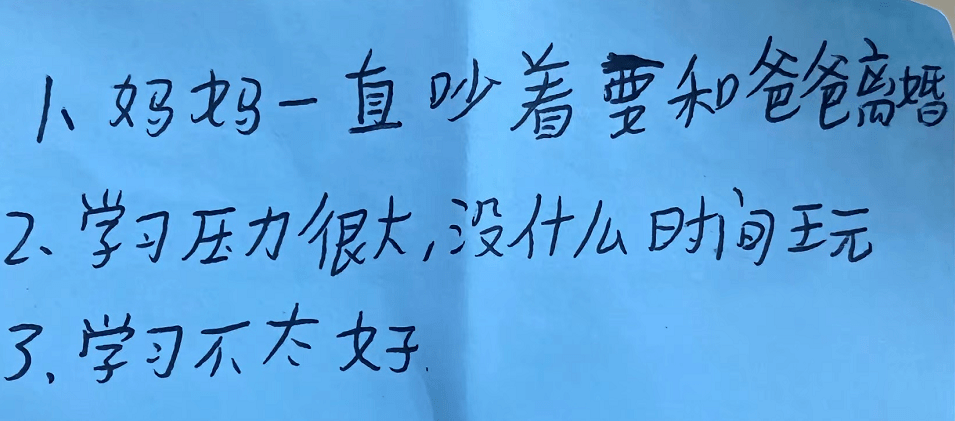 1、妈妈一直吵着要和爸爸离婚
2、学习压力很大,没什么时间玩
3、学习不太好.